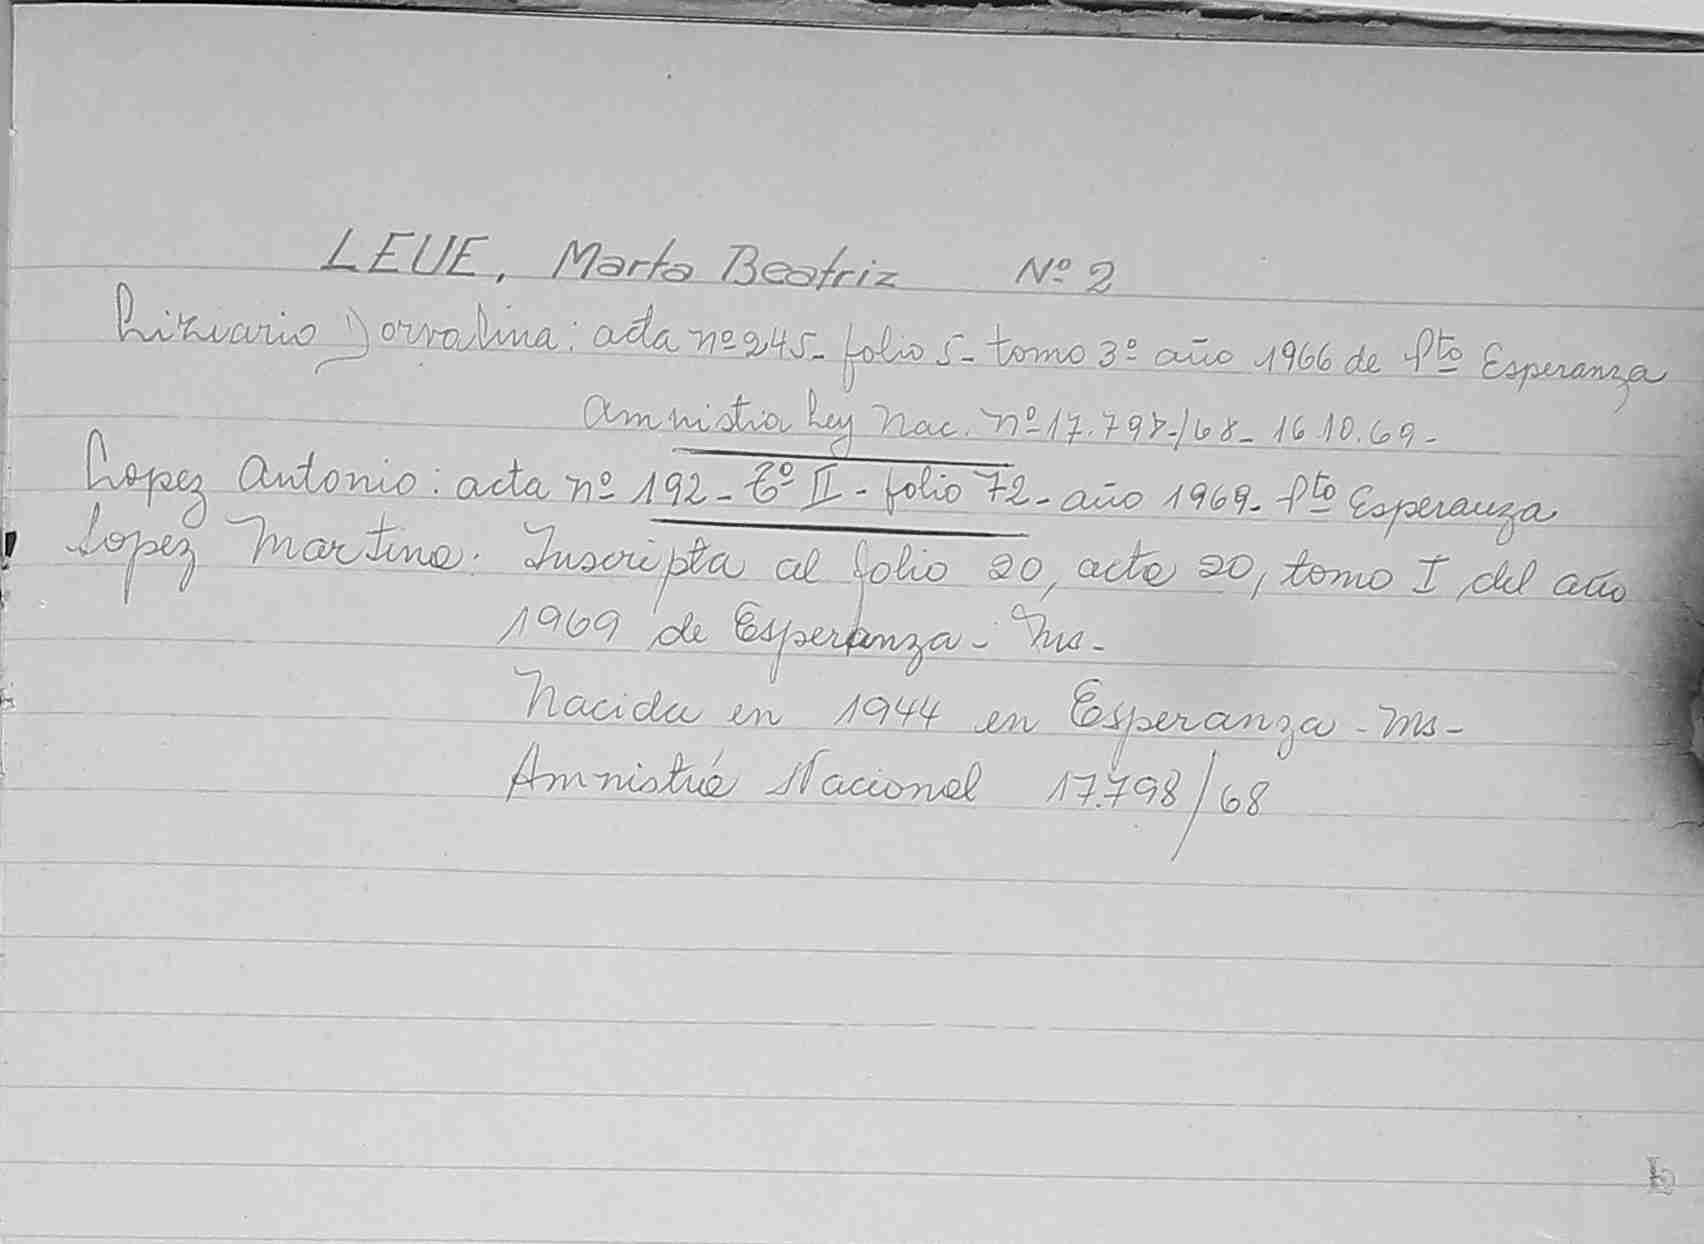 LEUE, Marta Beatriz Nº 2
Liziario Dorvalina: acta nº 245- folio 5- tomo 3º año 1966 de Pto Esperanza
Amnistia Ley Nac. nº 17.798-/68- 16.10.69-
Lopez Antonio: acta nº 192- tº II- folio 72- año 1969- Pto Esperanza
Lopez Martina. Inscripta al folio 20, acta 20, tomo I del año
1969 de Esperanza- Ms-
Nacida en 1944 en Esperanza- Ms-
Amnistía Nacional 17.798/68